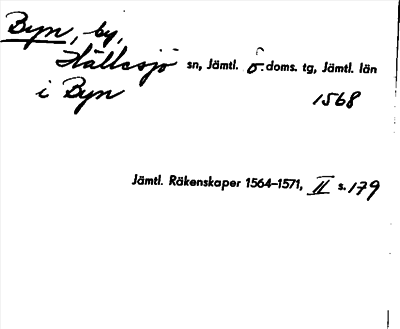 Byn, by,
Hällesjö sn, Jämtl. ö. doms. tg, Jämtl. län
i Byn 1568
Jämtl. Räkenskaper 1564–1571, II s. 179